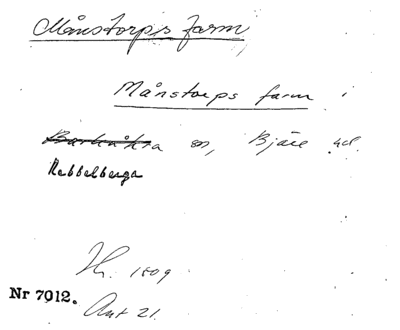 Månstorps farm
Månstorps farm i
Barkåkra sn, Bjäre hd.
Rebbelberga
Jh. 1809
Nr 7012.
Ant 21.